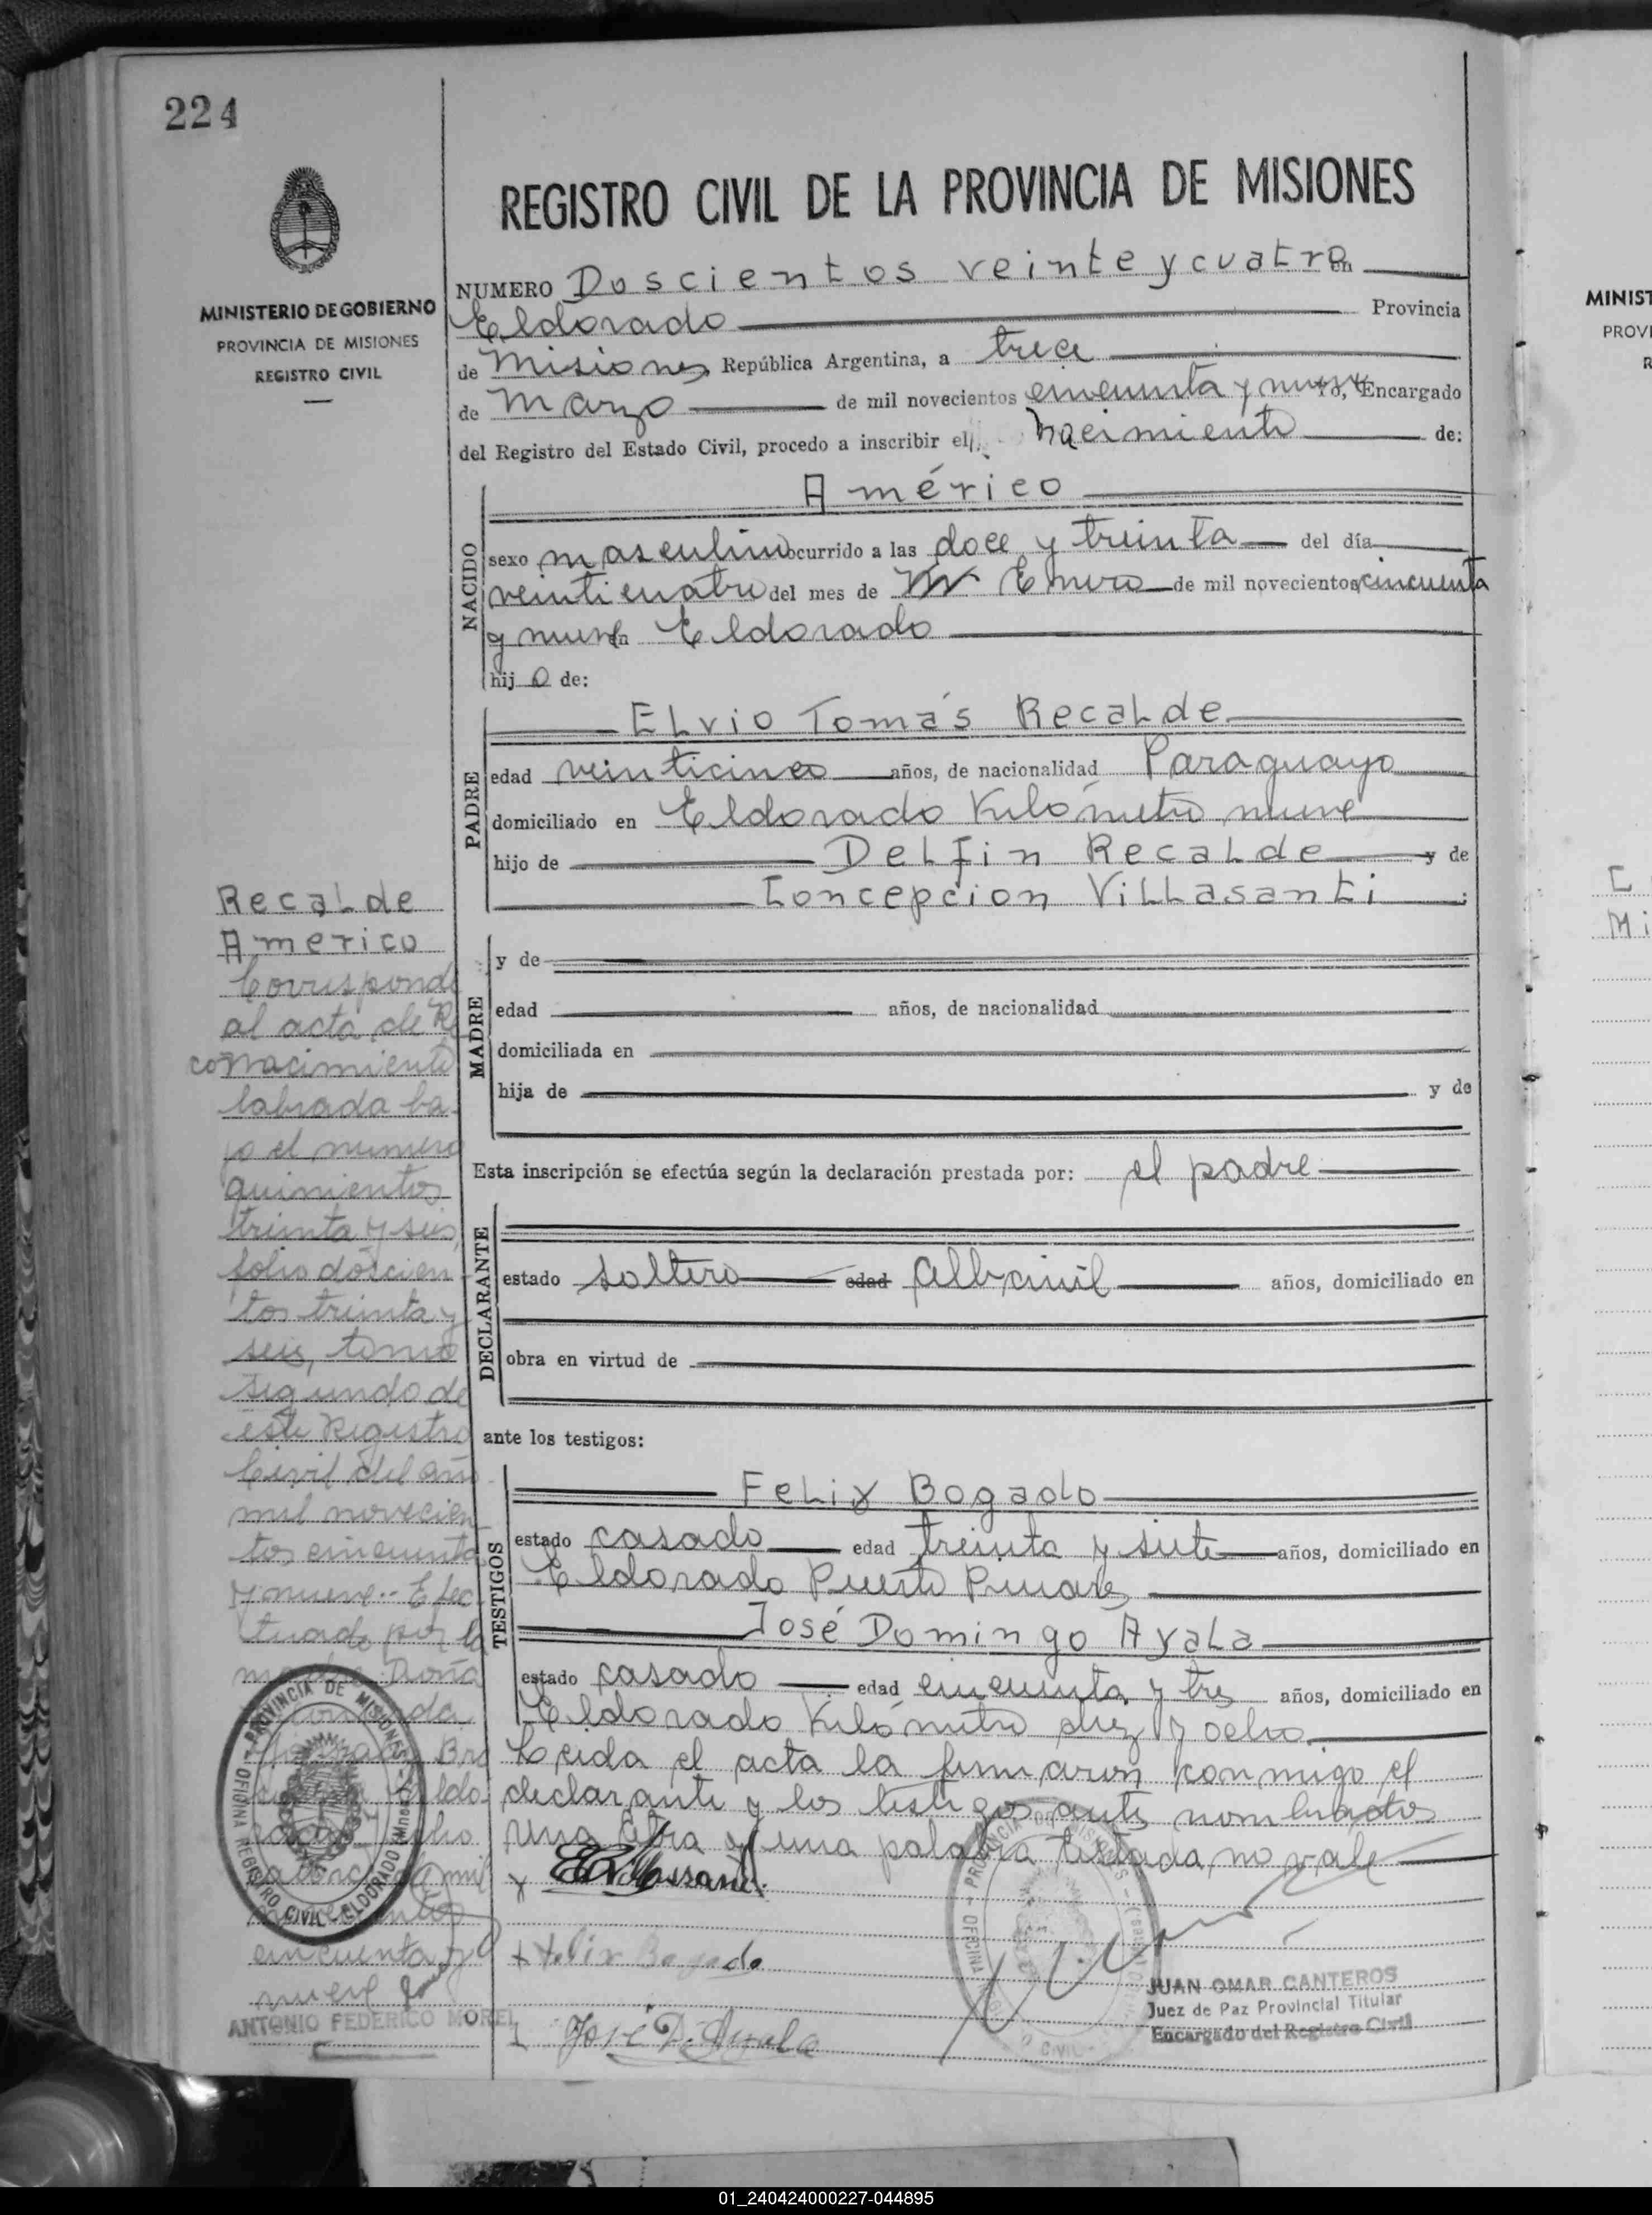 224
MINISTERIO DE GOBIERNO
PROVINCIA DE MISIONES
REGISTRO CIVIL
REGISTRO CIVIL DE LA PROVINCIA DE MISIONES
NUMERO Doscientos veinte y cuatro en
Eldorado Provincia
de Misiones República Argentina, a trece
de Marzo de mil novecientos cincuenta y nueve yo, Encargado
del Registro del Estado Civil, procedo a inscribir el nacimiento de:
NACIDO
Américo
sexo masculino ocurrido a las doce y treinta del día
veinticuatro del mes de Enero de mil novecientos cincuenta
y nueve en Eldorado
hijo de:
PADRE
Elvio Tomás Recalde
edad veinticinco años, de nacionalidad Paraguayo
domiciliado en Eldorado Kilómetro nueve
hijo de Delfin Recalde y de
Concepcion Villasanti ;
MADRE
y de
edad años, de nacionalidad
domiciliada en
hija de y de
Esta inscripción se efectúa según la declaración prestada por: el padre
DECLARANTE
estado soltero edad albañil años, domiciliado en
obra en virtud de
ante los testigos:
TESTIGOS
Felix Bogado
estado casado edad treinta y siete años, domiciliado en
Eldorado Puerto Pinares
José Domingo Ayala
estado casado edad cincuenta y tres años, domiciliado en
Eldorado Kilómetro diez y ocho.
Leida el acta la firmaron conmigo el
declarante y los testigos antes nombrados
una letra y una palabra testada no vale
x
x Felix Bogado
José D. Ayala
JUAN OMAR CANTEROS
Juez de Paz Provincial Titular
Encargado del Registro Civil
Recalde
Americo
Corresponde
al acta de Re
conocimiento
labrada ba-
jo el numero
quinientos
treinta y seis,
folio doscien
tos treinta y
seis, tomo
segundo de
este Registro
Civil del año
mil novecien
tos cincuenta
y nueve.- Efec
tuado por la
madre Doña
Eldo
mil
cincuenta y
nueve
ANTONIO FEDERICO MOREL
PROVINCIA DE MISIONES
OFICINA REGISTRO CIVIL - ELDORADO (Mnes.)
MINIST
PROVI
R
01_240424000227-044895